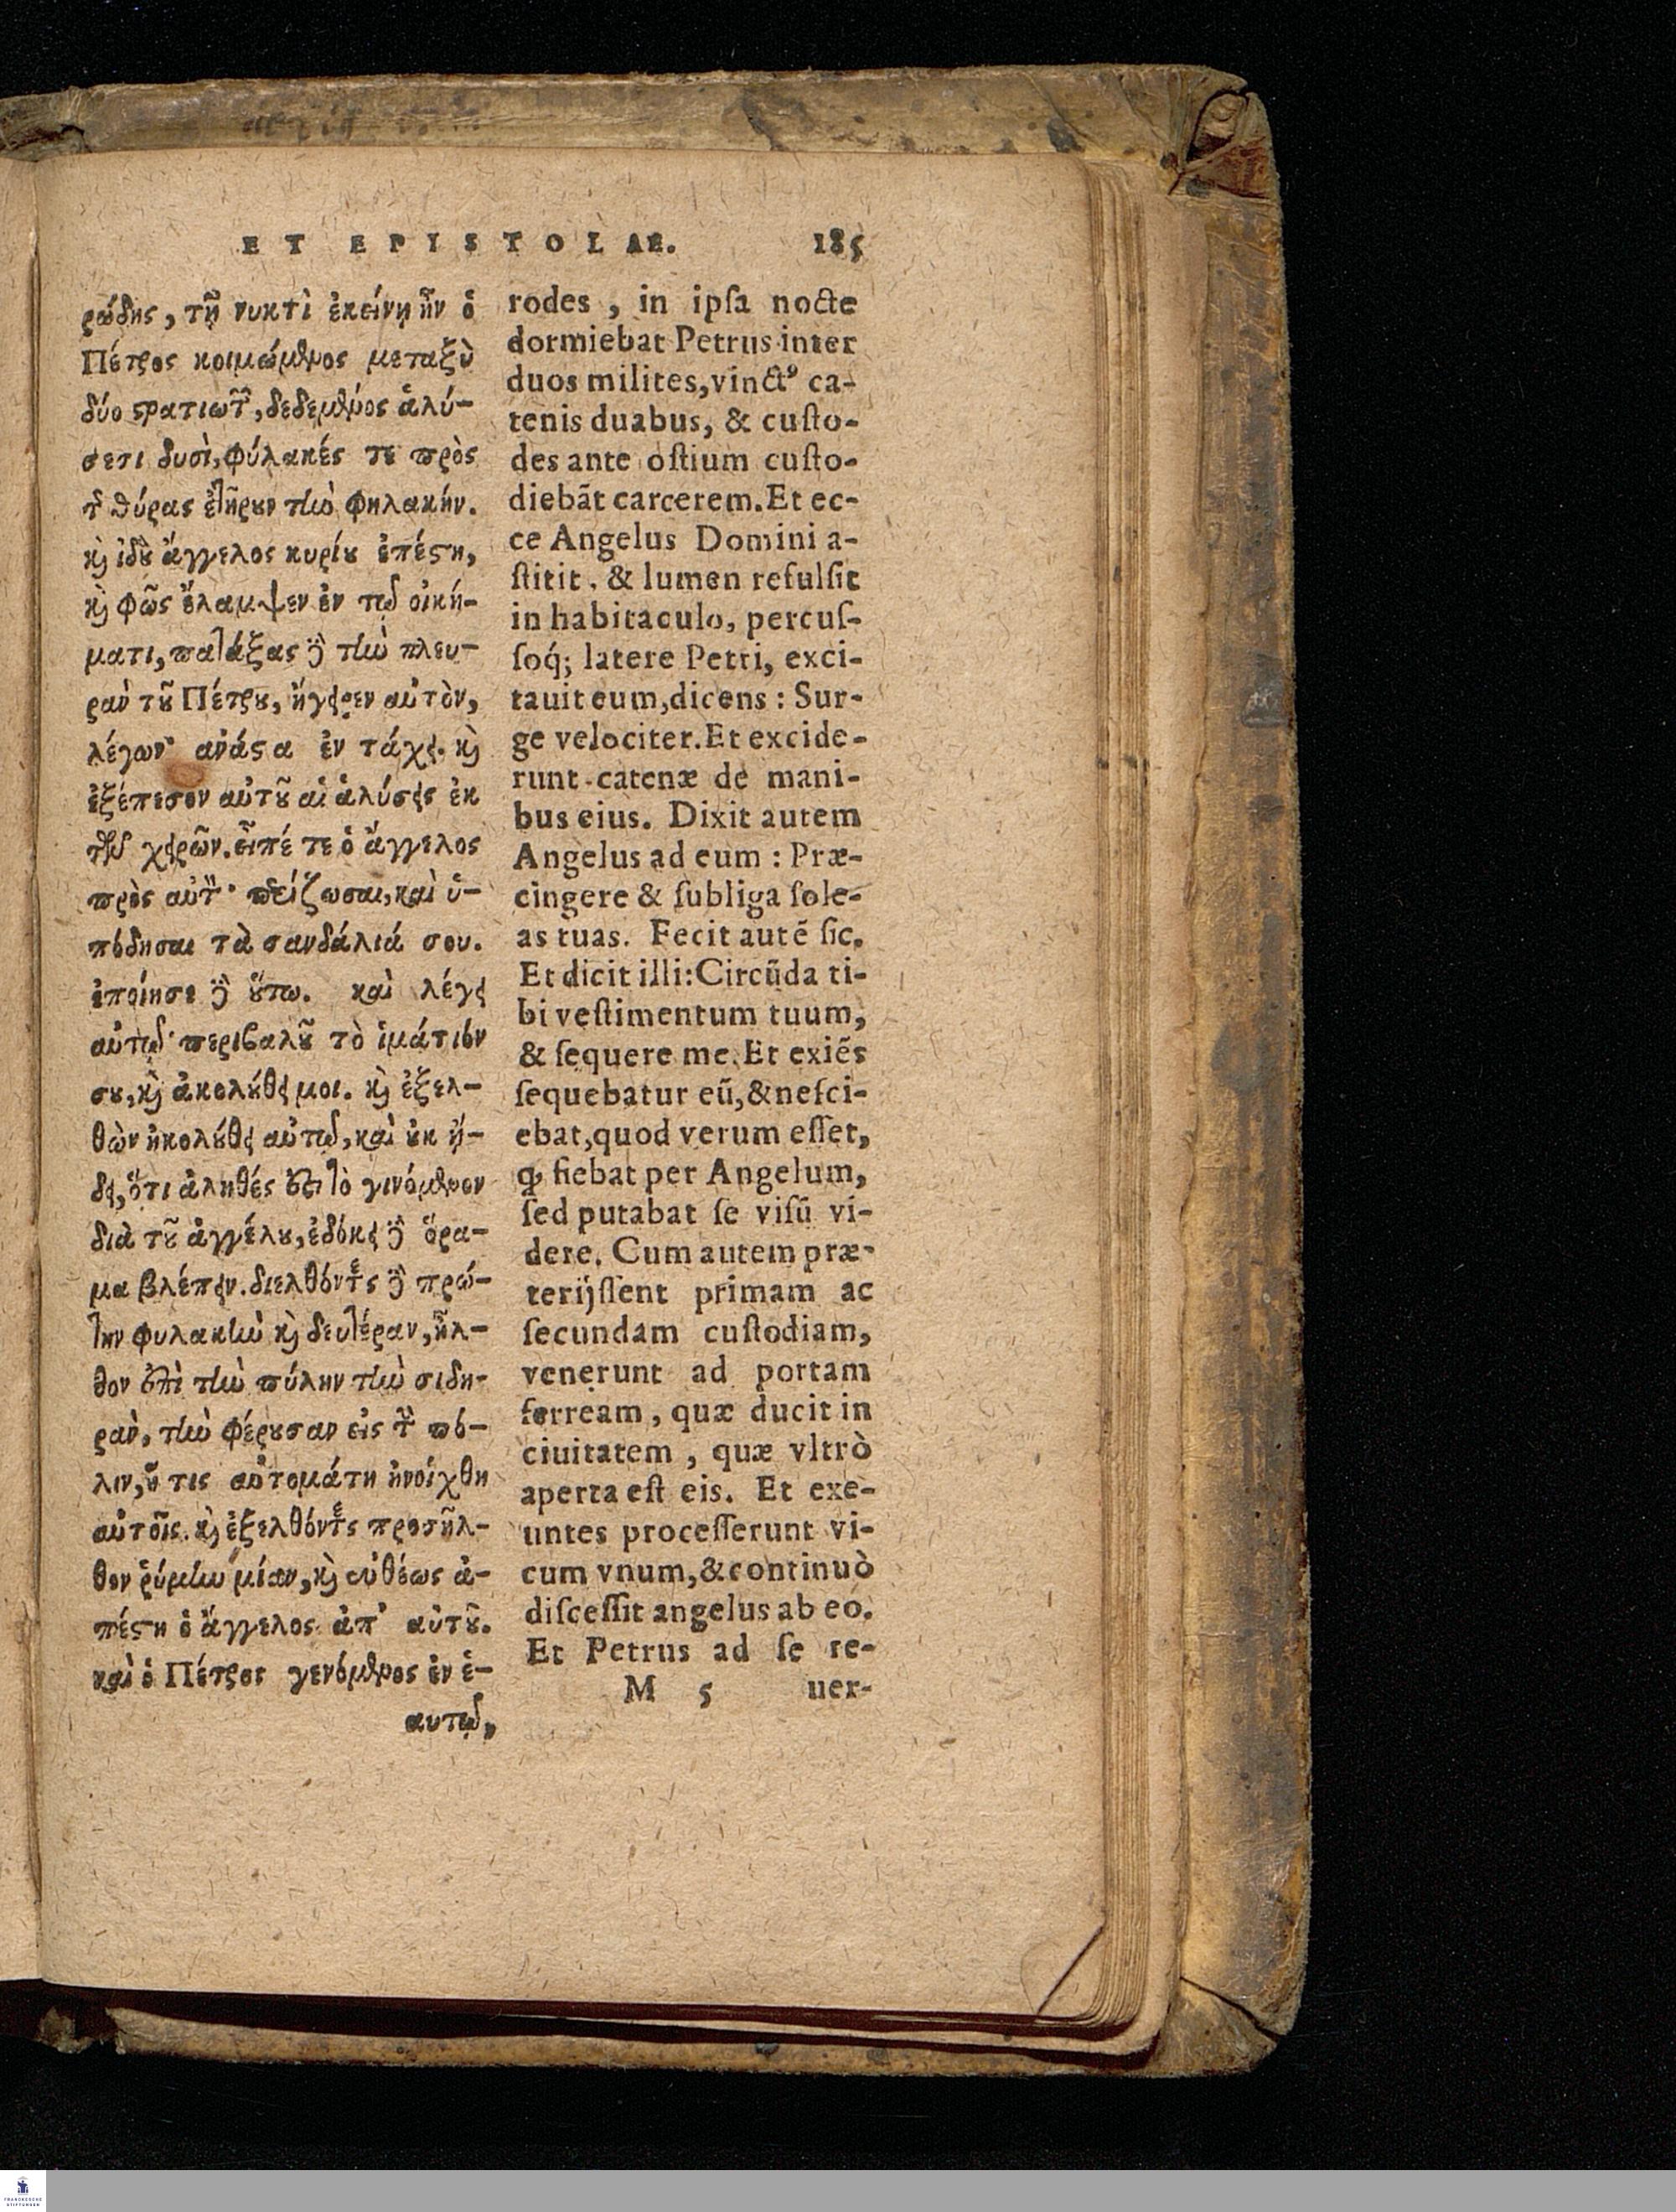 ET EPISTOLAE. 185
ρώδης, τῇ νυκτὶ ἐκείνῃ ἦν ὁ
Πέτρος κοιμώμενος μεταξὺ
δύο στρατιωτῶν, δεδεμένος ἁλύ-
σεσι δυσὶ, φύλακές τε πρὸς
τῆς θύρας ἐτήρουν τὴν φηλακήν.
καὶ ἰδοὺ ἄγγελος κυρίου ἐπέστη,
καὶ φῶς ἔλαμψεν ἐν τῷ οἰκή-
ματι, πατάξας δὲ τὴν πλευ-
ρὰν τοῦ Πέτρου, ἤγειρεν αὐτὸν,
λέγων· ἀνάστα ἐν τάχει. καὶ
ἐξέπεσον αὐτοῦ αἱ ἁλύσεις ἐκ
τῶν χειρῶν. εἶπέ τε ὁ ἄγγελος
πρὸς αὐτὸν· περίζωσαι, καὶ ὑ-
πόδησαι τὰ σανδάλιά σου.
ἐποίησε δὲ οὕτω. καὶ λέγει
αὐτῷ· περιβαλοῦ τὸ ἱμάτιόν
σου, καὶ ἀκολούθει μοι. καὶ ἐξελ-
θὼν ἠκολούθει αὐτῷ, καὶ οὐκ ᾔ-
δει, ὅτι ἀληθές ἐστι τὸ γινόμενον
διὰ τοῦ ἀγγέλου, ἐδόκει δὲ ὅρα-
μα βλέπειν. διελθόντες δὲ πρώ-
την φυλακὴν καὶ δευτέραν, ἦλ-
θον ἐπὶ τὴν πύλην τὴν σιδη-
ρὰν, τὴν φέρουσαν εἰς τὴν πό-
λιν, ἥ τις αὐτομάτη ἠνοίχθη
αὐτοῖς. καὶ ἐξελθόντες προσῆλ-
θον ῥύμην μίαν, καὶ εὐθέως ἀ-
πέστη ὁ ἄγγελος ἀπ' αὐτοῦ.
καὶ ὁ Πέτρος γενόμενος ἐν ἑ-
αυτῷ,
rodes , in ipſa nocte
dormiebat Petrus inter
duos milites, vinctꝰ ca-
tenis duabus, & cuſto-
des ante oſtium cuſto-
diebāt carcerem. Et ec-
ce Angelus Domini a-
ſtitit, & lumen refulſit
in habitaculo, percuſ-
ſoq́; latere Petri, exci-
tauit eum, dicens : Sur-
ge velociter. Et excide-
runt catenæ de mani-
bus eius. Dixit autem
Angelus ad eum : Præ-
cingere & ſubliga ſole-
as tuas. Fecit autē ſic.
Et dicit illi: Circūda ti-
bi veſtimentum tuum,
& ſequere me. Et exiēs
ſequebatur eū, & neſci-
ebat, quod verum eſſet,
ꝙ fiebat per Angelum,
ſed putabat ſe viſū vi-
dere. Cum autem præ-
terijſſent primam ac
ſecundam cuſtodiam,
venerunt ad portam
ferream, quæ ducit in
ciuitatem , quæ vltrò
aperta eſt eis. Et exe-
untes proceſſerunt vi-
cum vnum, & continuò
diſceſſit angelus ab eo.
Et Petrus ad ſe re-
M 5 uer-
FRANCKESCHE
STIFTUNGEN